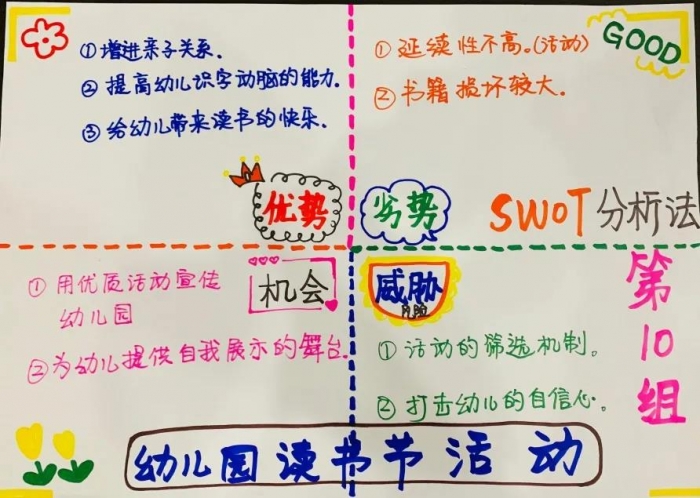 ① 增进亲子关系.
② 提高幼儿识字动脑的能力.
③ 给幼儿带来读书的快乐.
优势
① 延续性不高。(活动)
② 书籍损坏较大。
GOOD
劣势
SWOT 分析法
① 用优质活动宣传
幼儿园
② 为幼儿提供自我展示的舞台.
机会
威胁
风险
① 活动的筛选机制。
② 打击幼儿的自信心。
第10组
幼儿园读书节活动